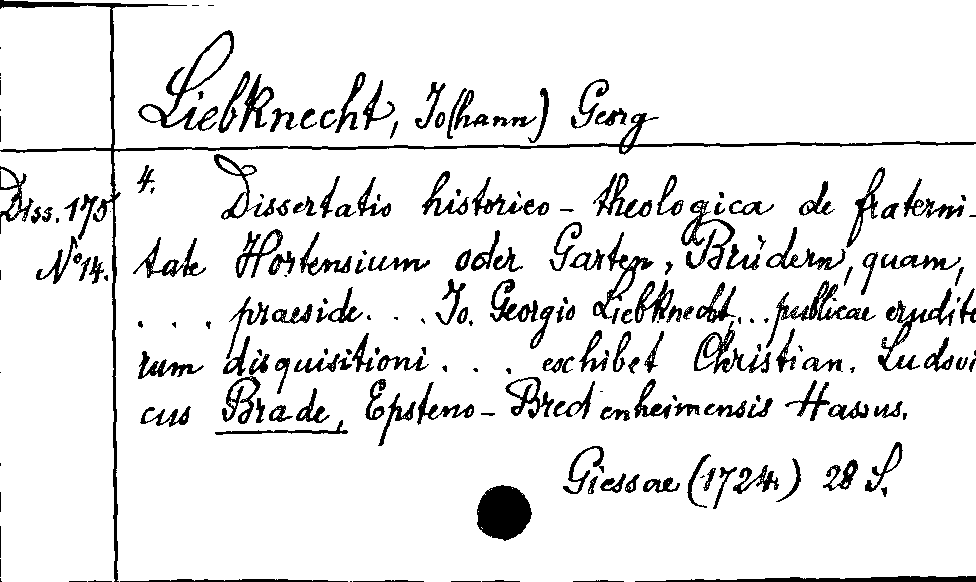 Liebknecht, Jo(hann) Georg
4.
Diss. 175
No 14.
Dissertatio historico-theologica de fraterni-
tate Hortensium oder Garten, Brüdern, quam,
. . . praeside . . . Jo. Georgio Liebknecht, ... publicae erudito
rum disquisitioni . . . exhibet Christian. Ludovi
cus Brade, Epsteno-Bredenheimensis Hassus.
Giessae (1724.) 28 S.